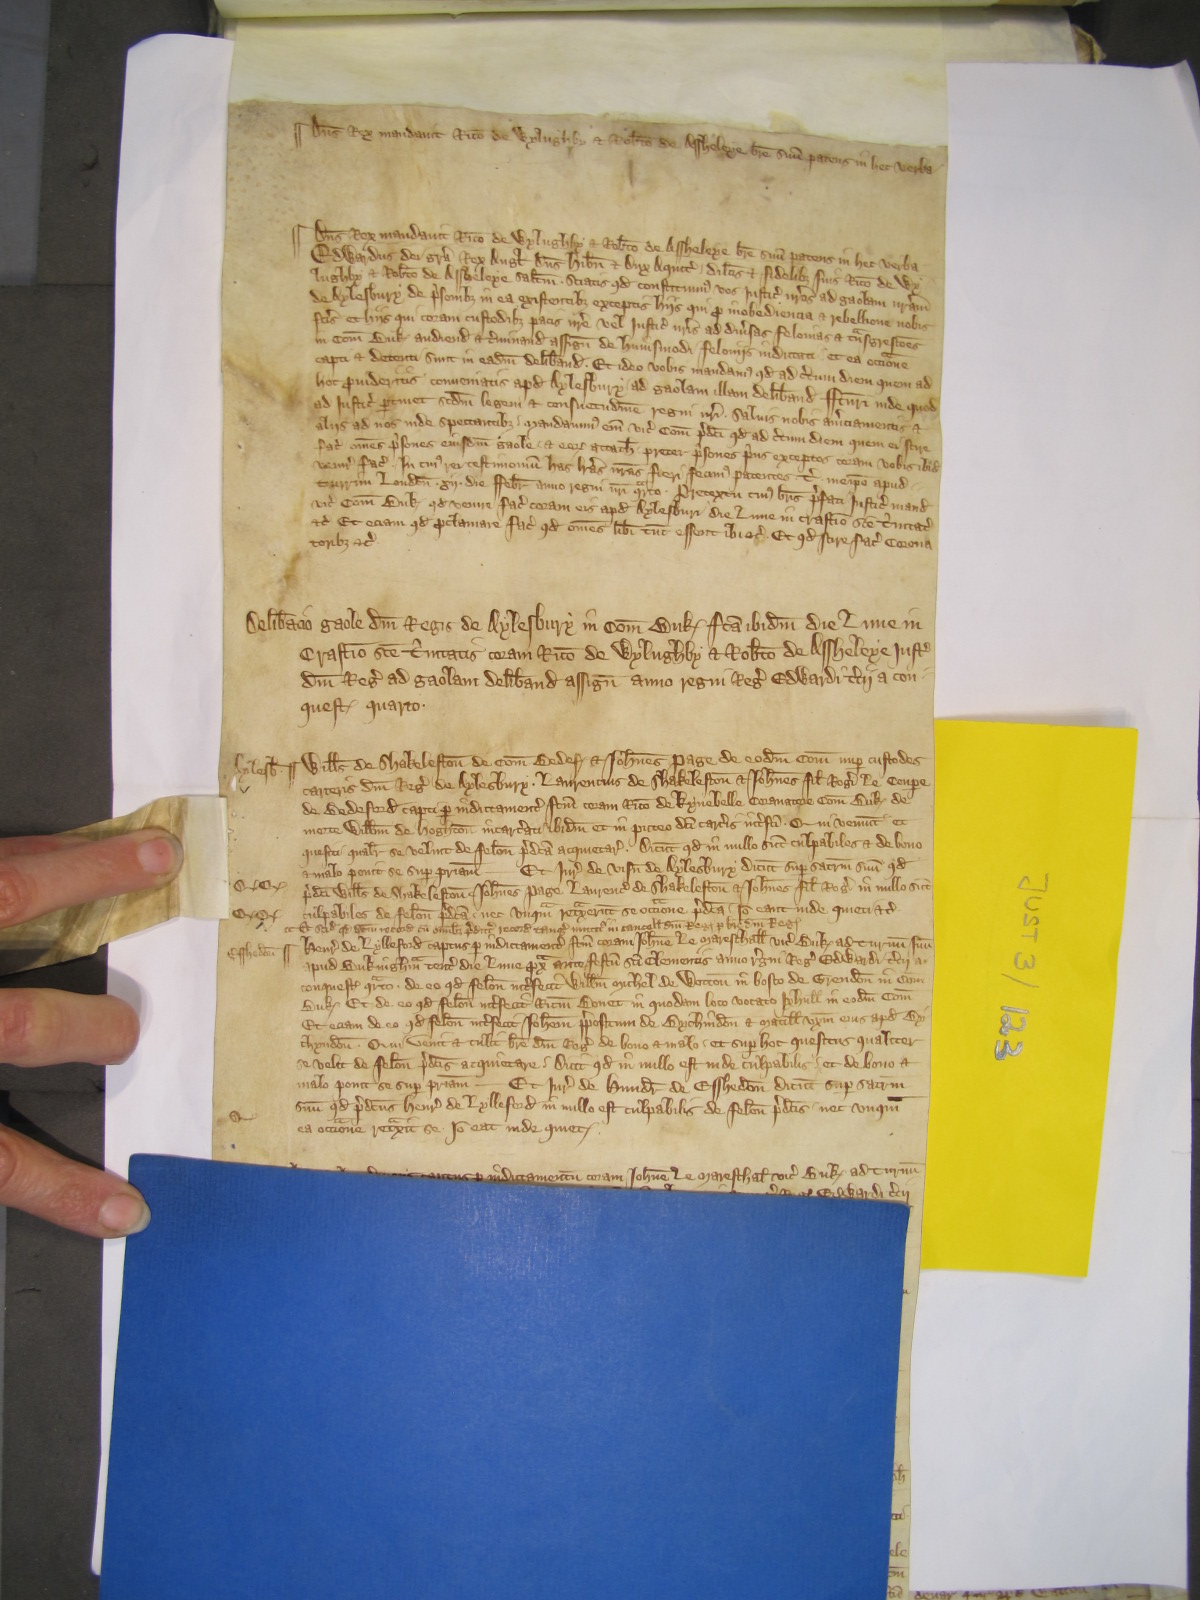 Dns Rex mandavit Rico de Wylughby & Robto de Assheleye bre suu patens in hec verba
Dns Rex mandavit Rico de Wylughby & Robto de Assheleye bre suu patens in hec verba
Edwardus dei gra Rex Angl Dns Hibn & Dux Aquit dilcis & fidelibz suis Rico de Wy
lughby & Robto de Assheleye saltm. Sciatis qd constituim vos Justic nros ad gaolam nram
de Aylesbury de prisonibz in ea existentibz exceptis hiis qui p inobediencia & rebellione nobis
fcis et hiis qui coram custodibz pacis nre vel Justic nris ad divsas felonias & tnsgressoes
in Com Buk audiend & tminand assign de huiusmodi feloniis indictati et ea occione
capti & detenti sunt in eadm deliband. Et ideo vobis mandam qd ad ctum diem quem ad
hoc provideritis conveniatis apd Aylesbury ad gaolam illam deliband ffcuri inde quod
ad Justic ptinet scdm legem & consuetudine regni nri. Salvis nobis amciamentis &
aliis ad nos inde spectantibz. Mandavim em vic Com pdci qd ad ctum diem quem ei scire
fac omes prisones eiusdm gaole & eor attach preter prisones prius exceptos coram vobis ibid
venire fac. In cui rei testimoniu has lras nras fieri fecim patentes T. meipo apud
Turrim London. xij. die ffebr anno regni nri qrto. Pretextu cui bris pfati Justic mand
vic Com Buk qd venire fac coram eis apd Aylesburi die Lune in crastino sce Trinitat
&c Et eciam qd pclamare fac qd omes libi tunc essent ibi &c. Et qd scire fac Corona
toribz &c
Delibacio gaole dni Regis de Aylesbury in Com Buk fca ibidm die Lune in
Crastino sce Trinitatis coram Rico de Wylughby & Robto de Assheleye Justic
dni Reg ad gaolam deliband assign anno regni Reg Edwardi tcij a con
quest quarto.
Aylesb Wills de Shakeleston de Com Bedef & Johnes Page de eodm Com nup custodes
carceris dni Reg de Aylesbury. Laurencius de Shakeleston & Johnes fil Rog Le Coupe
de Bedeford capti p indictament fcm coram Rico de Kynebelle Coronatore Com Buk de
morte Willmi de Hoghton incarcati ibidm et in puteo dci carcis intfci. Qui veniut et
quesiti qualr se velint de felon pdca acquietar. Dicut qd in nullo sut culpabiles & de bono
& malo ponit se sup priam Et Jur de visn de Aylesbury dicut sup sacrm suu qd
pdci Wills de Shakeleston Johnes Page Laurenc de Shakeleston & Johnes fil Rog in nullo sut
culpabiles de felon pdca nec unqm retxerut se occione pdca Io eant inde quieti &c.
Essedon Henr de Lylleford captus p indictament fcm coram Johne Le Mareschall vic Buk ad turnu suu
apud Bukinghm tent die Lune px ante festu sci Clementis anno rgni Reg Edwardi tcij a
conquest qrto. de eo qd felon intfecit Willm Michel de Wotton in bosco de Grendon in Com
Buk Et de eo qd felon intfecit Ricm Bonet in quodam loco vocato Ixhull in eodm Com
Et eciam de eo qd felon intfecit Johem ppositum de Wychindon & Matill uxm eius apd Wy
chyndon. Qui venit & tulit bre dni Reg de bono & malo. et sup hoc quesitus qualiter
se velit de felon pdcis acquietare. Dicit qd in nullo est inde culpabilis et de bono &
malo ponit se sup priam Et Jur de Hundr de Esshedon dicut sup sacrm
suu qd pdcus Henr de Lylleford in nullo est culpabilis de felon pdcis nec unqm
ea occione retxit se. Io eat inde quiet.
captus p indictamentu coram Johne Le Mareschal vic Buk ad turnu
Edwardi tcij
JUST 3/123